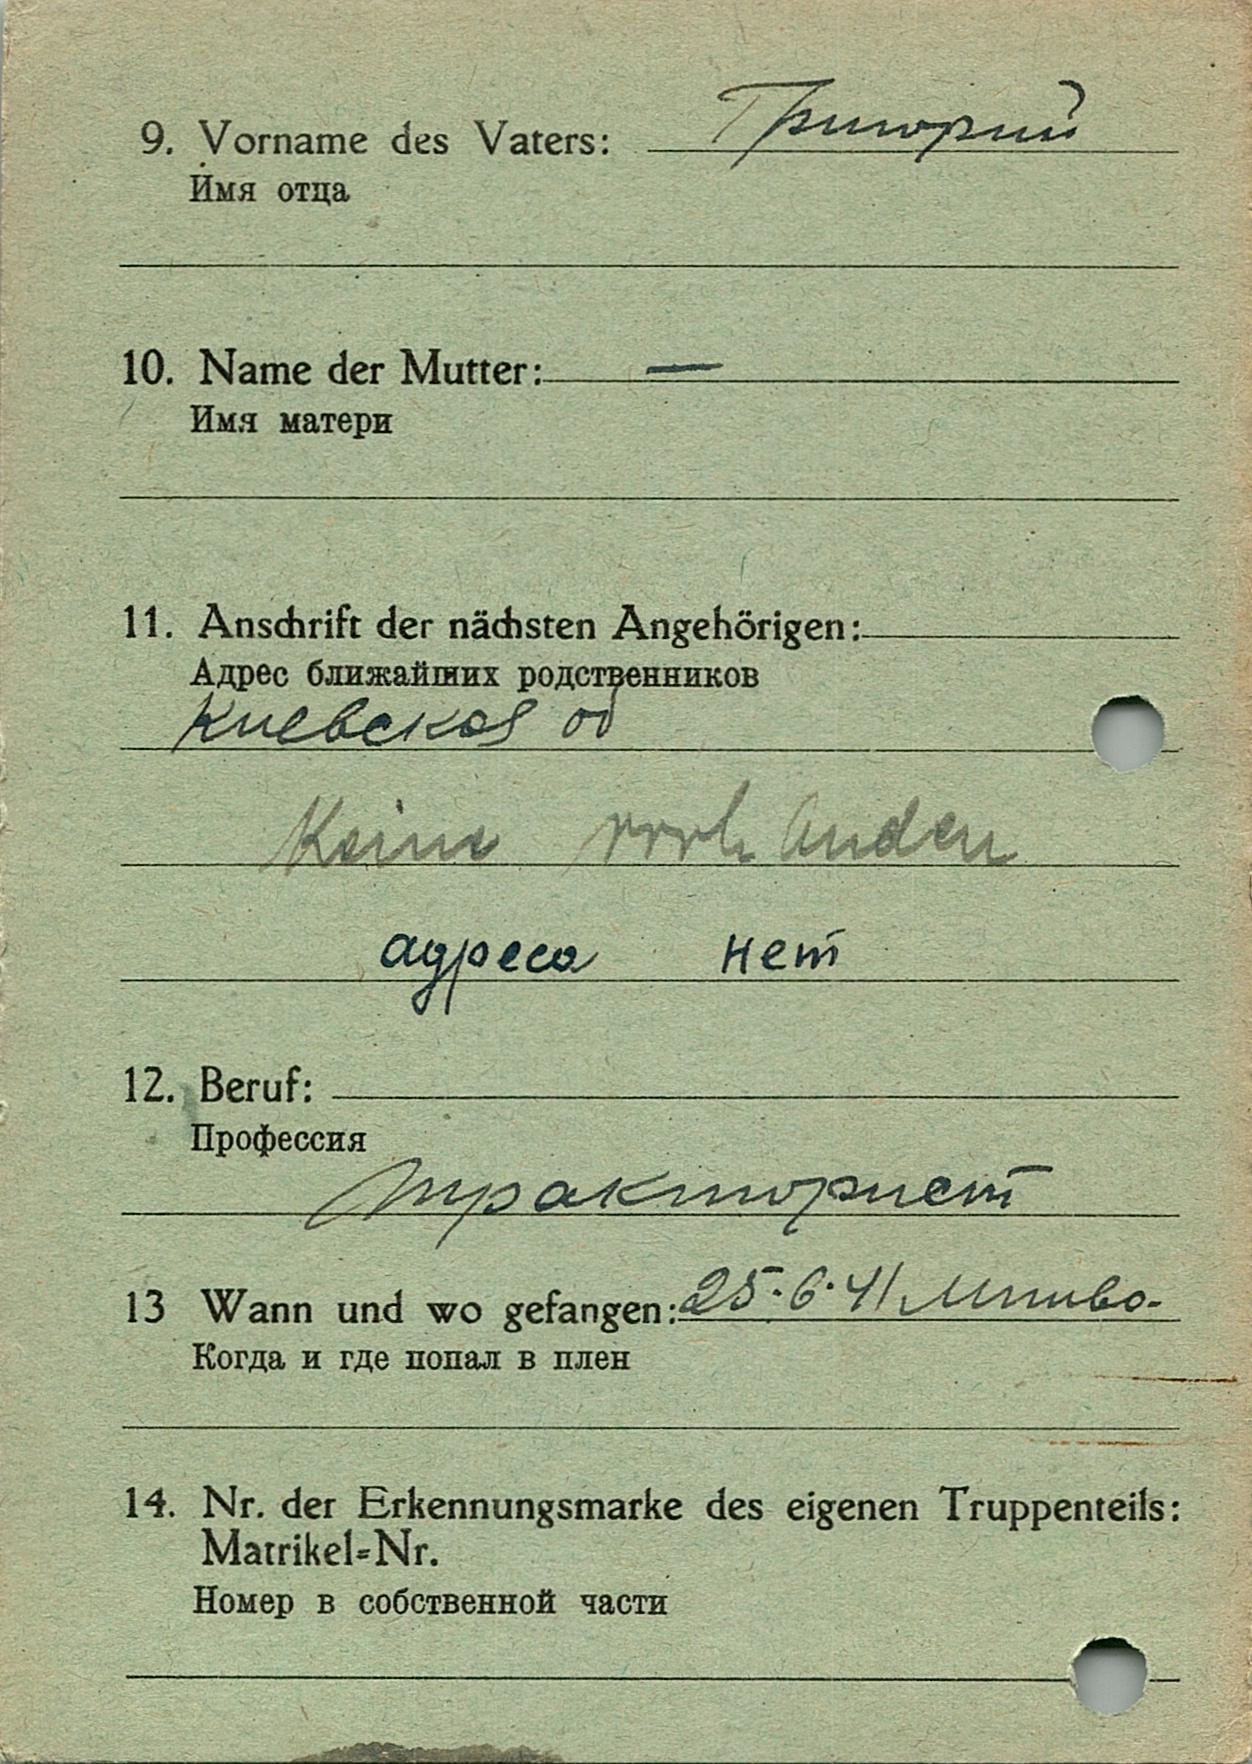 9. Vorname des Vaters: Григорий
Имя отца
10. Name der Mutter: —
Имя матери
11. Anschrift der nächsten Angehörigen:
Адрес ближайших родственников
Киевская об
Keine vorhanden
адреса нет
12. Beruf:
Профессия
тракторист
13 Wann und wo gefangen: 25.6.41
Когда и где попал в плен
14. Nr. der Erkennungsmarke des eigenen Truppenteils:
Matrikel=Nr.
Номер в собственной части